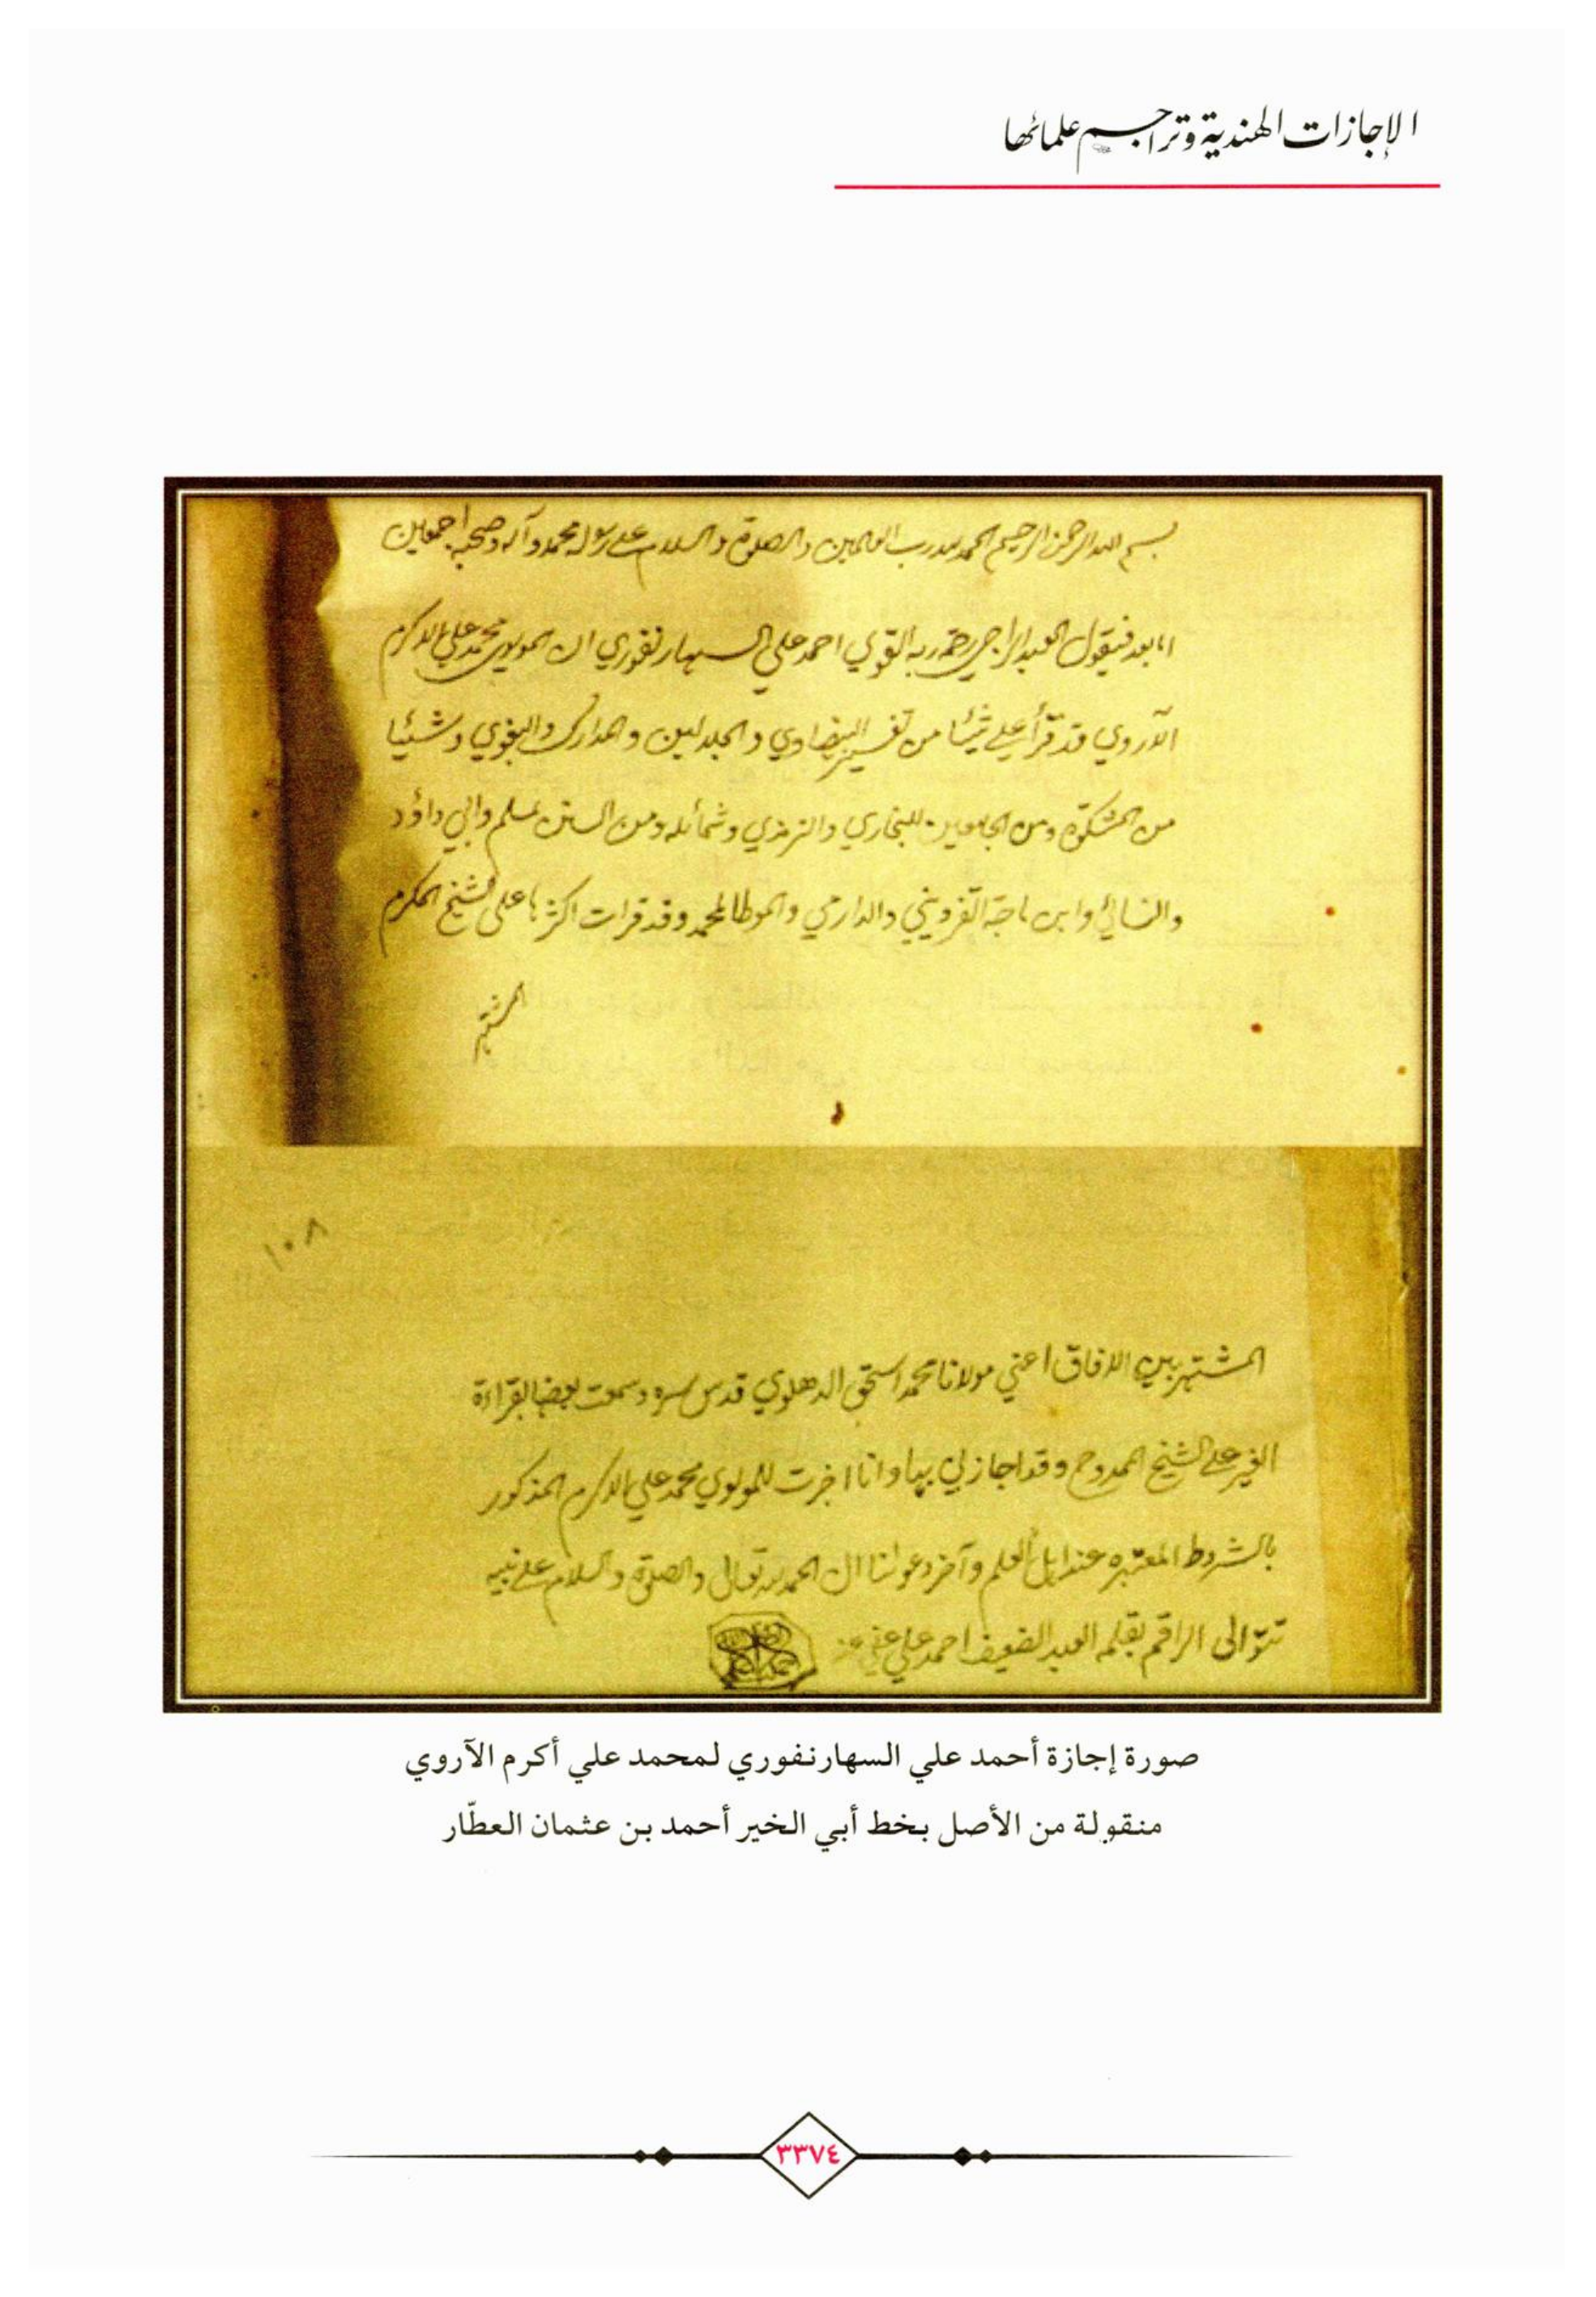 الإجازات الهندية وتراجم علمائها
بسم الله الرحمن الرحيم الحمد لله رب العالمين والصلوة والسلام على رسوله محمد وآله وصحبه اجمعين
اما بعد فيقول العبد الراجي رحمة ربه القوي احمد علي السهارنفوري ان المولوي محمد علي الاكرم
الآروي قد قرأ علي شيئا من تفسير البيضاوي والجلالين والمدارك والبغوي وشيئا
من المشكوة ومن الجامعين للبخاري والترمذي وشمائله ومن السنن لمسلم وابي داؤد
والنسائي وابن ماجة القزويني والدارمي والموطا لمحمد وقد قرات اكثرها على الشيخ المكرم
المشتهر
١٠٨
المشتهر بين الافاق اعني مولانا محمد اسحق الدهلوي قدس سره وسمعت بعضها بقراءة
الغير على الشيخ الممدوح وقد اجازني بها وانا اجزت للمولوي محمد علي الاكرم المذكور
بالشروط المعتبرة عند اهل العلم وآخر دعوانا ان الحمد لله تعالى والصلوة والسلام على نبيه
تتوالى الراقم بقلمه العبد الضعيف احمد علي عفي عنه
صورة إجازة أحمد علي السهارنفوري لمحمد علي أكرم الآروي
منقولة من الأصل بخط أبي الخير أحمد بن عثمان العطّار
٣٣٧٤